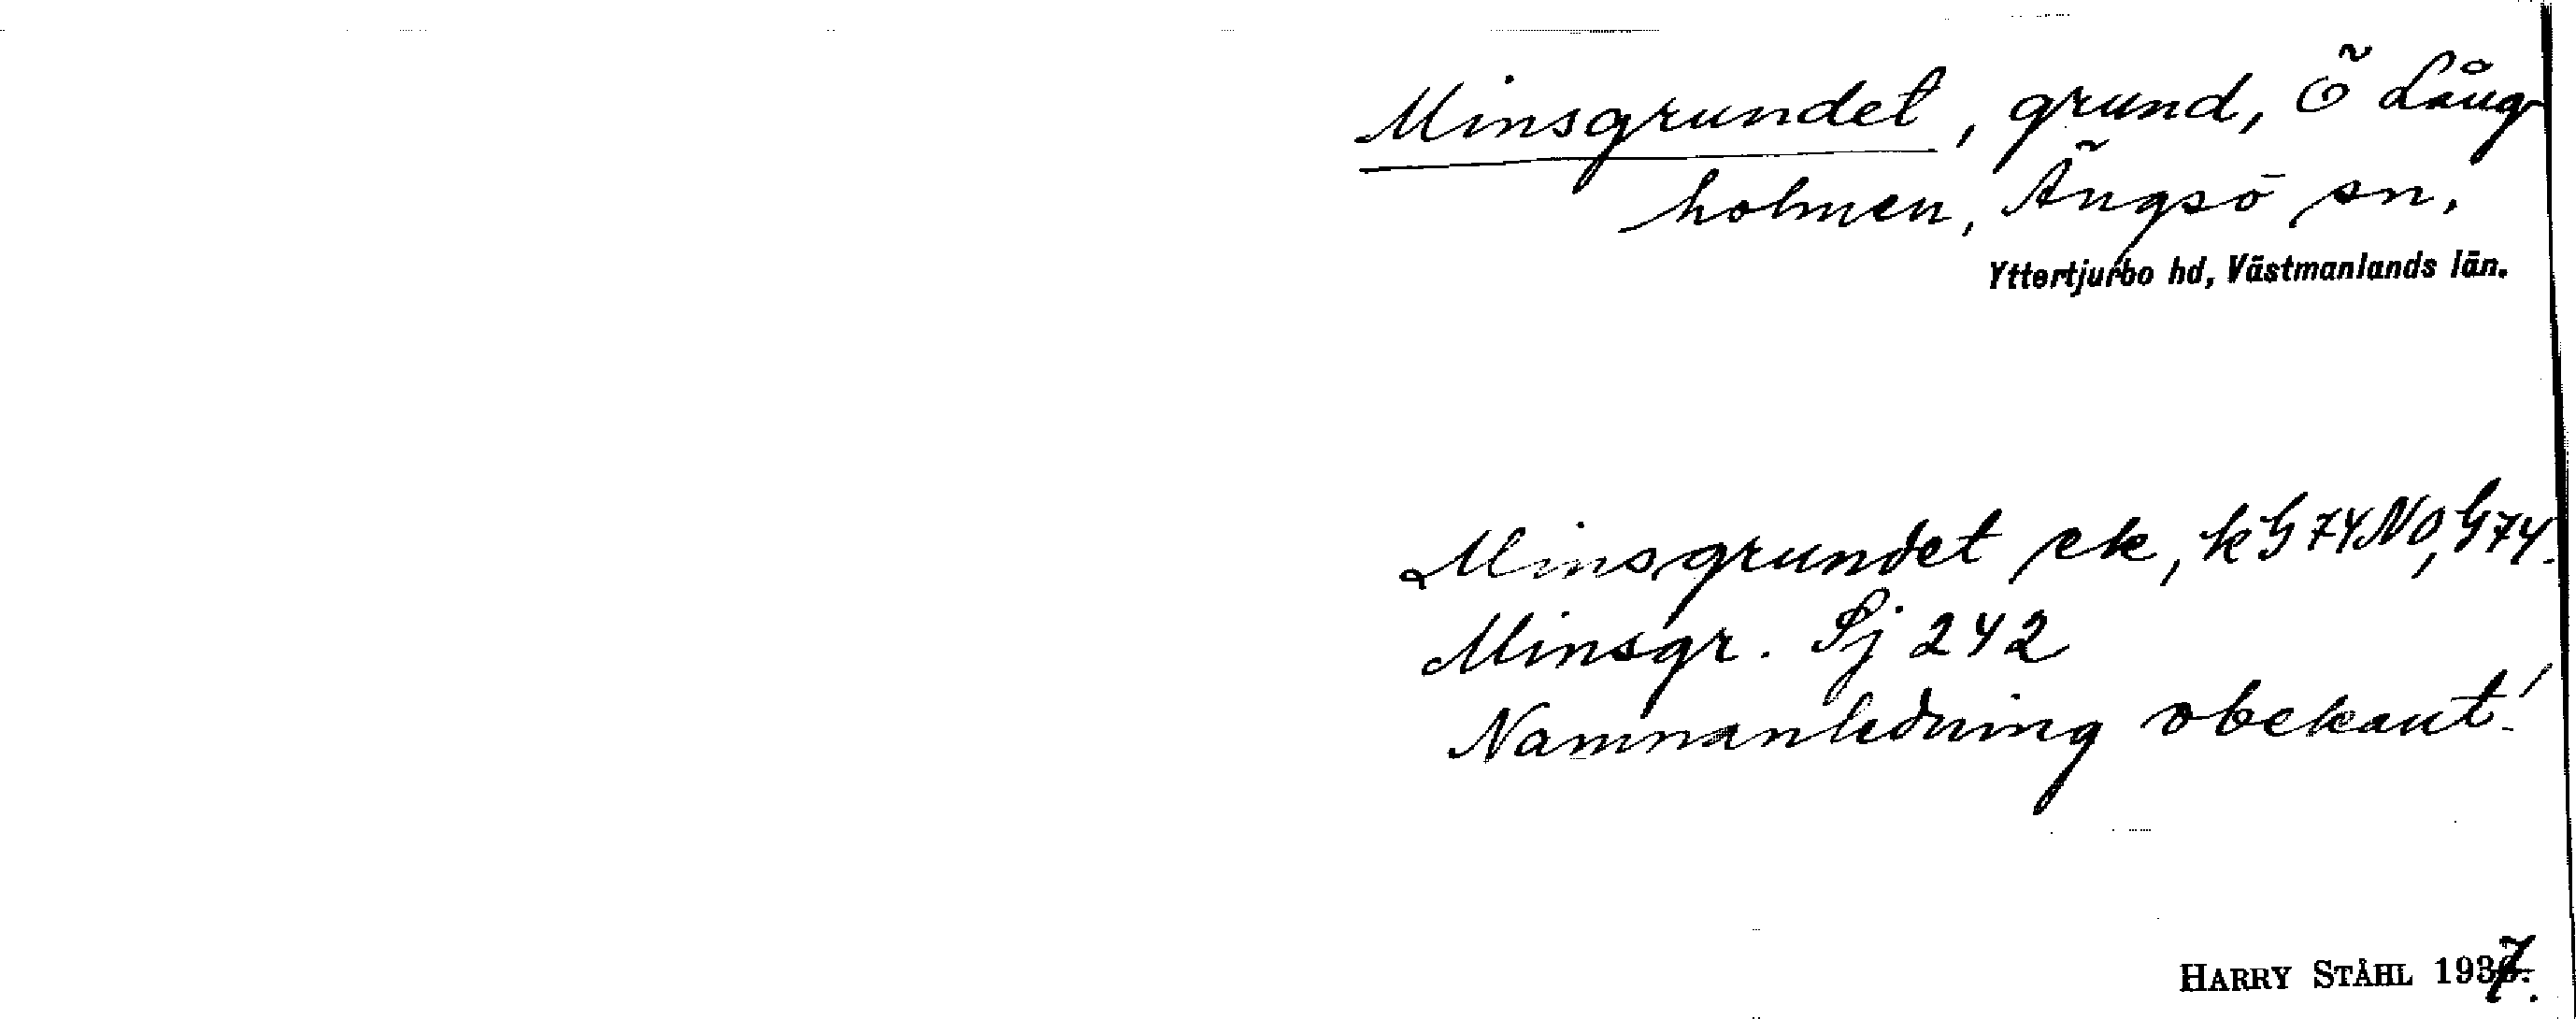 Minsgrundet, grund, Ö Lång-
holmen, Ängsö sn,
Yttertjurbo hd, Västmanlands län.
Minsgrundet ek, kG74NO, G74.
Minsgr. Sj 242
Namnanledning obekant!
HARRY STÅHL 1937.